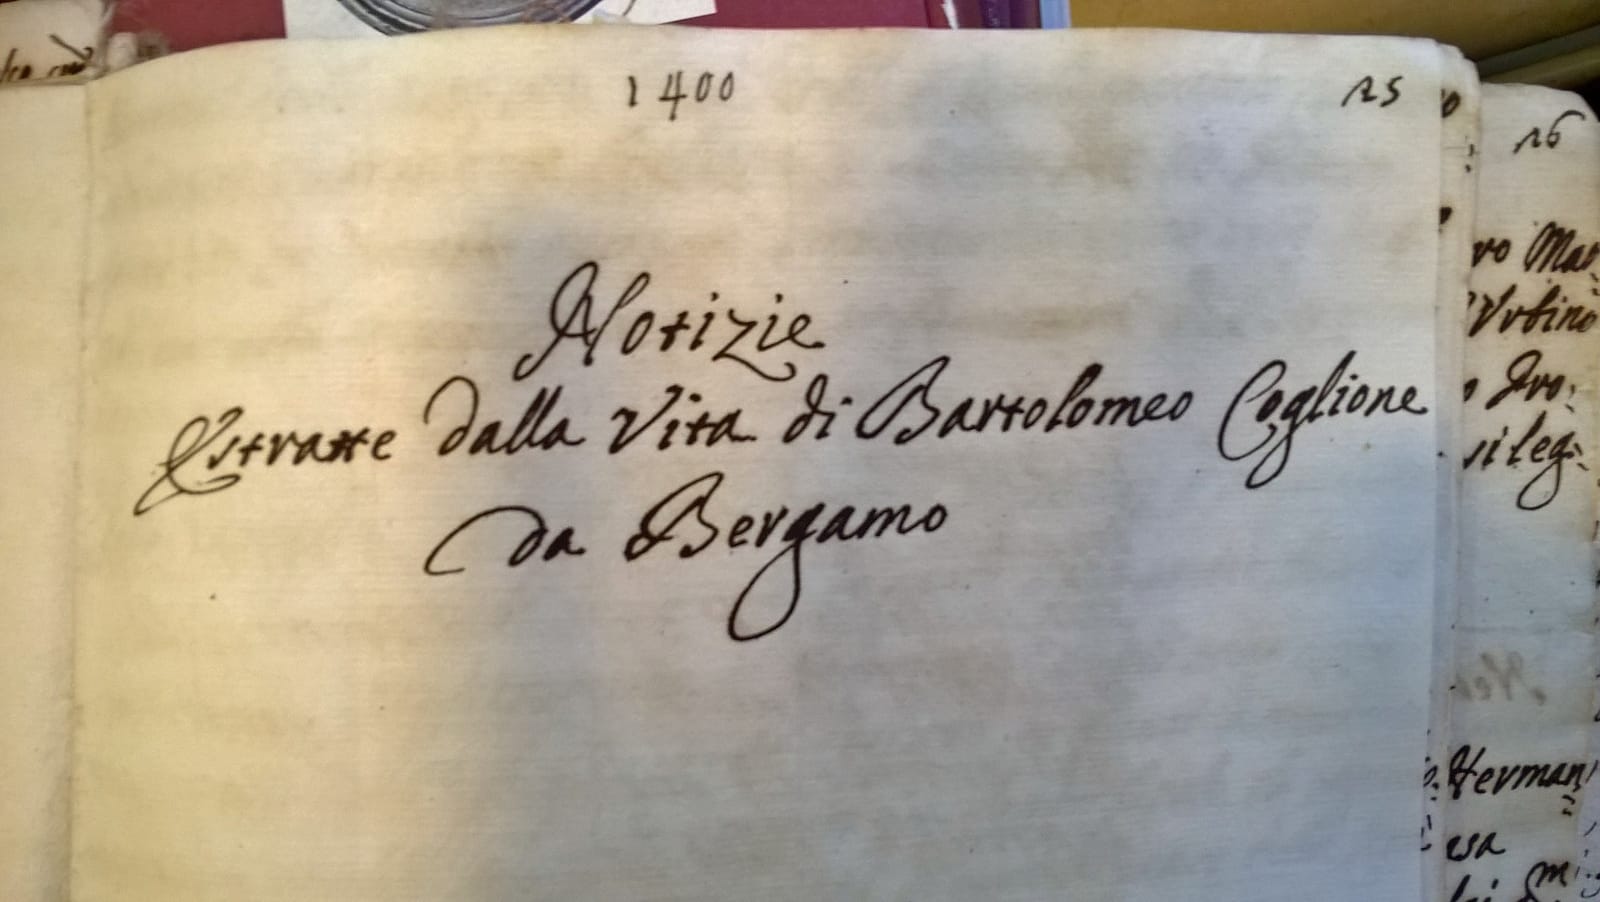 1400
15
Notizie
Estratte dalla Vita di Bartolomeo Coglione
da Bergamo
16
Vrbino
Herman
esa